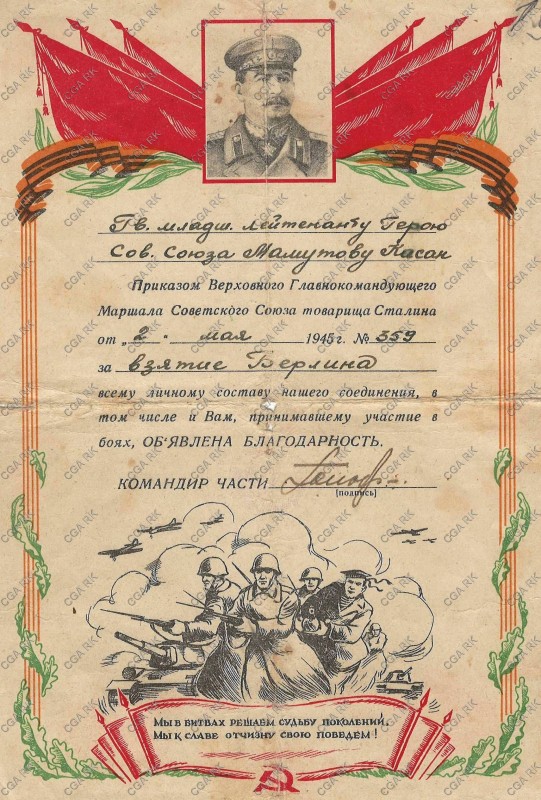 Гв. младш. лейтенанту Герою
Сов. Союза Мамутову Касан
Приказом Верховного Главнокомандующего
Маршала Советского Союза товарища Сталина
от „2“ мая 1945 г. № 359
за взятие Берлина
всему личному составу нашего соединения, в
том числе и Вам, принимавшему участие в
боях, ОБ'ЯВЛЕНА БЛАГОДАРНОСТЬ.
КОМАНДИР ЧАСТИ
[подпись]
МЫ В БИТВАХ РЕШАЕМ СУДЬБУ ПОКОЛЕНИЙ,
МЫ К СЛАВЕ ОТЧИЗНУ СВОЮ ПОВЕДЁМ!
CGA RK